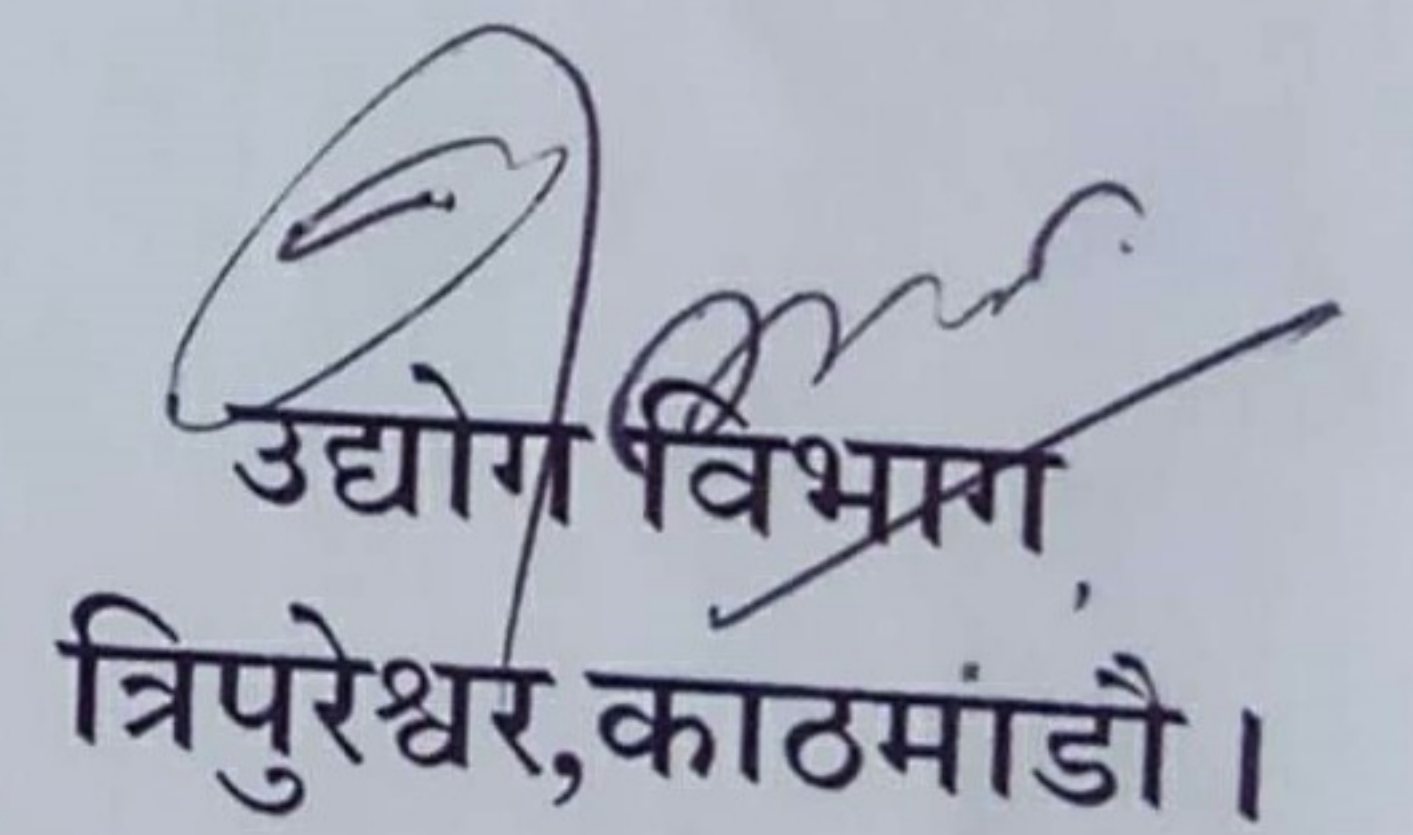 उद्योग विभाग
त्रिपुरेश्वर,काठमांडौ ।